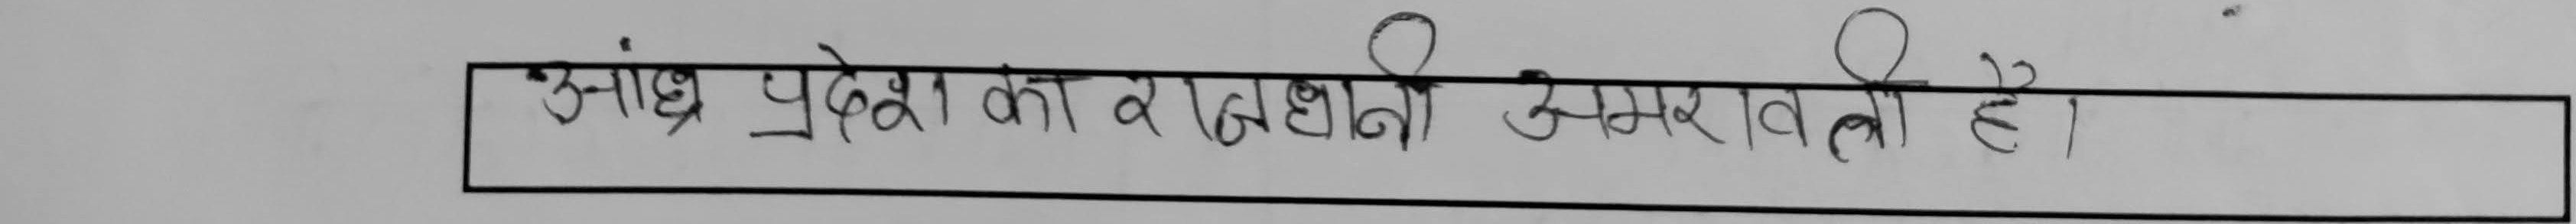 आंध्र प्रदेश का राजधानी अमरावती है।